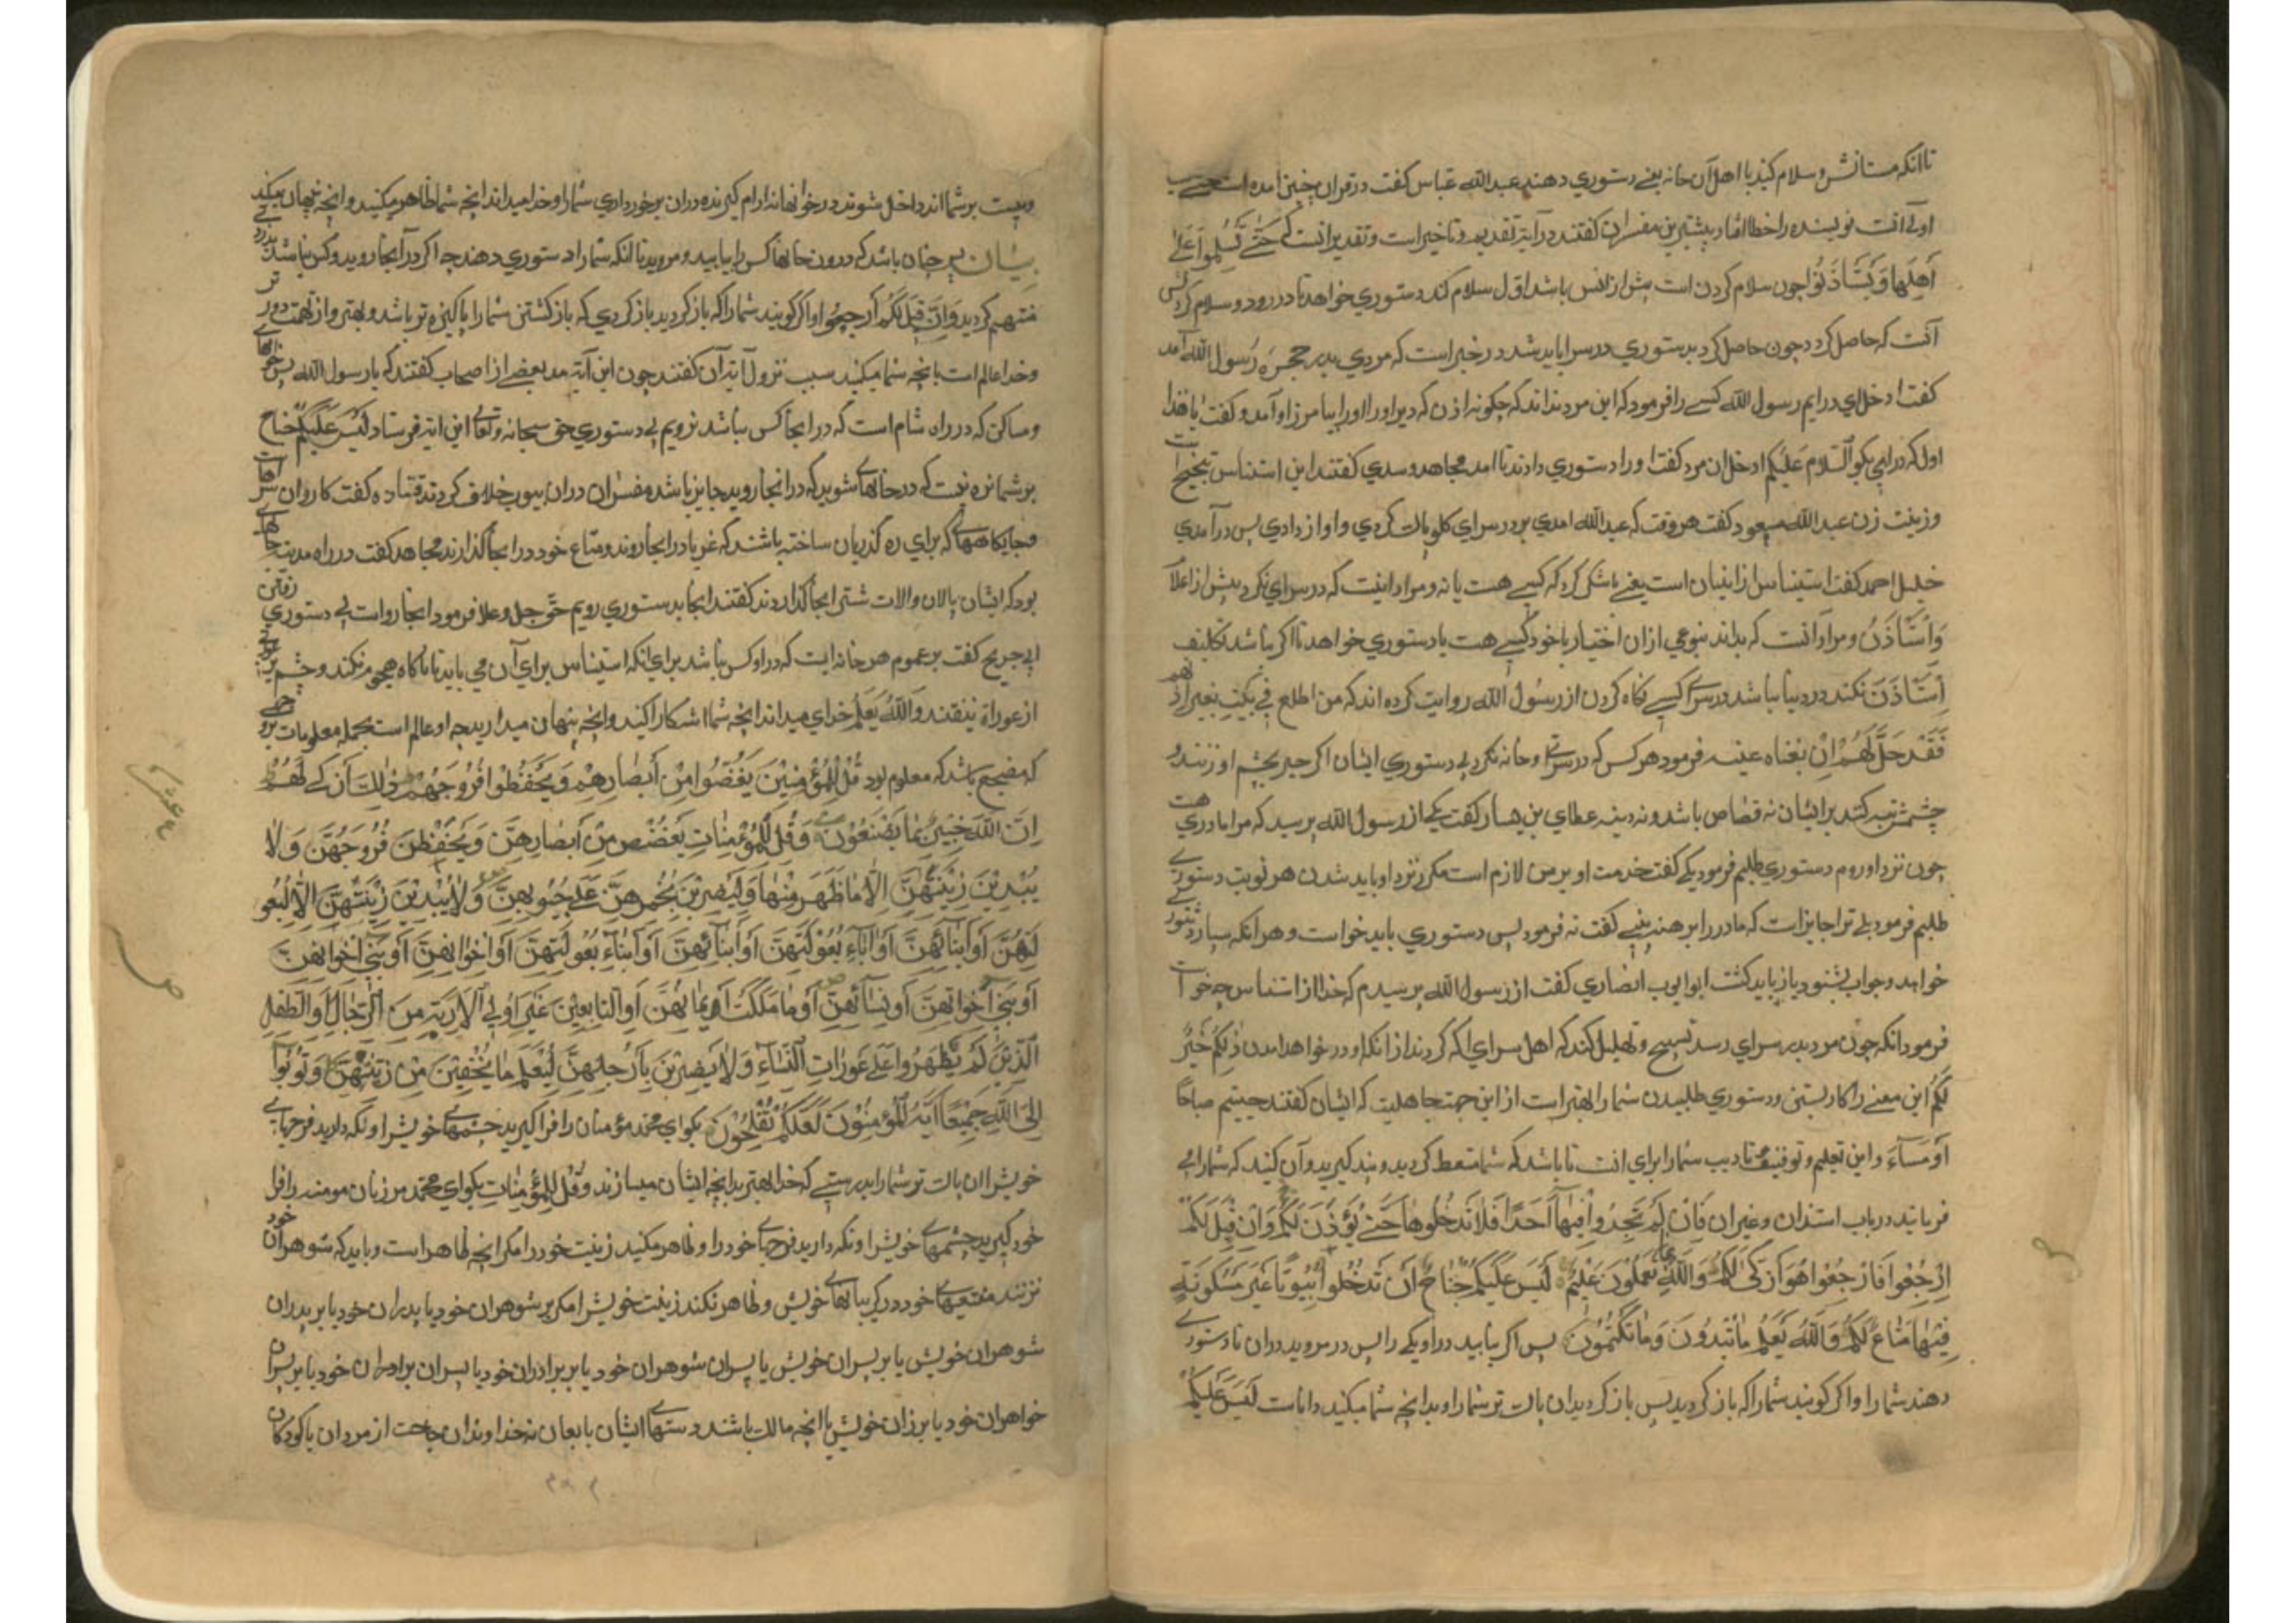 تا انکه مستانش و سلام کنید با اهل آن خانه یعنی دستوری دهند عبدالله عباس کفت در قران چنین امده است
اولی انست نویسنده را خطا افتاد و بیشترین مفسران کفتند در آیة تقدیم و تاخیر است و تقدیر انست که حَتّٰی تُسَلِّمُوا عَلٰی
اَهْلِهَا وَتَسْتَأْذِنُوا چون سلام کردن است پیش از انس باشد اول سلام کند دستوری خواهد تا در رود و سلام کردن
آنست که حاصل کردد چون حاصل کردد بدستوری در سرا باید شد در خبر است که مردی بدر حجره رسول الله آمد
کفت ادخل ای درایم رسول الله کسی را فرمود که این مرد نداند که چکونه اذن کند برو اورا بیاموز او آمد و کفت یا هذا
اول که درایی بکو السلام علیکم ادخل ان مرد کفت اورا دستوری دادند تا امد مجاهد و سدی کفتند این استناس تنحنح است
وزینت زن عبدالله مسعود کفت هر وقت که عبدالله امدی بر در سرای کلو پاک کردی و اواز دادی پس درآمدی
خلیل احمد کفت استیناس از است یعنی باشی کرد که کسی هست یا نه و مراد اینست که در سرای نکرد پیش از اعلام
وَاسْتَأْذَنُ و مراد آنست که بداند بنوعی ازان اختیار با خود کسی هست یا دستوری خواهد تا اکر نباشد تکلیف
اِسْتَأْذَنَ نکند در دنیا نباشد در سرای کسی نکاه کردن از رسول الله روایت کرده اند که من اطلع فی بیت بغیر اذنهم
فَقَدْ حَلَّ لَهُمْ اَنْ یفقاه عینه فرمود هر کس که در سرای و خانه نکرد بی دستوری ایشان اکر چیز بچشم او زنند و
چشمش تبه کند بر ایشان نه قصاص باشد و نه دیه عطای بن یسار کفت یکی از رسول الله پرسید که مرا مادری هست
چون نزد او روم دستوری طلبم فرمود بلی کفت خدمت او بر من لازم است مکر نزد او باید شدن هر نوبت دستوری
طلبم فرمود بلی ترا جایز است که مادر را برهنه بینی کفت نه فرمود پس دستوری باید خواست و هر انکه سه بار دستوری
خواهد و جواب نشنود باز باید کشت ابو ایوب انصاری کفت از رسول الله پرسیدم که خدا از استیناس چه خواست
فرمود انکه چون مرد بدر سرای رسد تسبیح و تهلیل کند که اهل سرای اکه کردند از انکه او در خواهد امدن ذٰلِکُمْ خَیْرٌ
لَکُمْ این معنی را کار بستنی و دستوری طلبیدن شما را بهتر است از این جهت جاهلیت که ایشان کفتند حییتم صباحًا
اَوْ مَسَآءً و این تعلیم و توقیف تادیب شما را برای انست تا باشد که شما متعظ کردید و پند کیرید و آن کنید که شما را
فرمایند در باب استذان و غیر ان فَاِنْ لَمْ تَجِدُوا فِیهَا اَحَدًا فَلَا تَدْخُلُوهَا حَتّٰی یُؤْذَنَ لَکُمْ وَاِنْ قِیلَ لَکُمُ
ارْجِعُوا فَارْجِعُوا هُوَ اَزْکٰی لَکُمْ وَاللّٰهُ بِمَا تَعْمَلُونَ عَلِیمٌ لَیْسَ عَلَیْکُمْ جُنَاحٌ اَنْ تَدْخُلُوا بُیُوتًا غَیْرَ مَسْکُونَةٍ
فِیهَا مَتَاعٌ لَکُمْ وَاللّٰهُ یَعْلَمُ مَا تُبْدُونَ وَمَا تَکْتُمُونَ پس اکر نیابید در او یکی را پس در مروید دران تا دستوری
دهند شما را و اکر کویند شما را که باز کردید پس باز کردید ان پاک تر شما را و بدانچه شما میکنید داناست لَیْسَ عَلَیْکُمْ
و نیست بر شما اندر داخل شوند در خوانها نه ارام کیرنده دران برخورداری شما را و خدا میداند انچه شما ظاهر میکنید و انچه نهان میکنید
پس چنان باشد که درون خانها کس را نیابید و مروید تا انکه شما را دستوری دهند چه اکر در آنجا روید و کس نباشد بدزدی
متهم کردید وَاِنْ قِیلَ لَکُمُ ارْجِعُوا و اکر کویند شما را که باز کردید باز کردی که باز کشتن شما را پاکیزه تر باشد و بهتر و از تهمت دورتر
وخدا عالم است بانچه شما میکنید سبب نزول آیه آن کفتند چون این آیة مد بعضی از اصحاب کفتند که یا رسول الله پس خوانهای
و مساکن که در راه شام است که در انجا کس نباشد نرویم بی دستوری حق سبحانه و تعالی این ایة فرستاد لَیْسَ عَلَیْکُمْ جُنَاحٌ
بر شما بزه نیست که در خانهای شوید که در انجا روید جایز باشد مفسران دران بیوت خلاف کردند قتاده کفت کاروان سراهاست
و جایکاههای که برای ره کذریان ساخته باشند که غربا در انجا روند و متاع خود در انجا کذارند مجاهد کفت در راه مدینه جاهای
بود که ایشان پالان و الات شتر انجا کذاردند کفتند انجا بدستوری رویم حق جل و علا فرمود انجا رواست بی دستوری رفتن
ابن جریج کفت بر عموم هر خانه ایست که در او کس نباشد برای انکه استیناس برای آن می باید تا ناکاه هجوم نکند و چشم
از عوراة نیفتد وَاللّٰهُ یَعْلَمُ خدای میداند انچه شما اشکارا کنید و انچه پنهان میدارید چه او عالم است بجمله معلومات
که صحیح باشد که معلوم بود قُلْ لِلْمُؤْمِنِینَ یَغُضُّوا مِنْ اَبْصَارِهِمْ وَیَحْفَظُوا فُرُوجَهُمْ ذٰلِکَ اَزْکٰی لَهُمْ
اِنَّ اللّٰهَ خَبِیرٌ بِمَا یَصْنَعُونَ وَقُلْ لِلْمُؤْمِنَاتِ یَغْضُضْنَ مِنْ اَبْصَارِهِنَّ وَیَحْفَظْنَ فُرُوجَهُنَّ وَلَا
یُبْدِینَ زِینَتَهُنَّ اِلَّا مَا ظَهَرَ مِنْهَا وَلْیَضْرِبْنَ بِخُمُرِهِنَّ عَلٰی جُیُوبِهِنَّ وَلَا یُبْدِینَ زِینَتَهُنَّ اِلَّا لِبُعُو
لَتِهِنَّ اَوْ اٰبَآئِهِنَّ اَوْ اٰبَآءِ بُعُولَتِهِنَّ اَوْ اَبْنَآئِهِنَّ اَوْ اَبْنَآءِ بُعُولَتِهِنَّ اَوْ اِخْوَانِهِنَّ اَوْ بَنِی اِخْوَانِهِنَّ
اَوْ بَنِی اَخَوَاتِهِنَّ اَوْ نِسَآئِهِنَّ اَوْ مَا مَلَکَتْ اَیْمَانُهُنَّ اَوِ التَّابِعِینَ غَیْرِ اُولِی الْاِرْبَةِ مِنَ الرِّجَالِ اَوِ الطِّفْلِ
الَّذِینَ لَمْ یَظْهَرُوا عَلٰی عَوْرَاتِ النِّسَآءِ وَلَا یَضْرِبْنَ بِاَرْجُلِهِنَّ لِیُعْلَمَ مَا یُخْفِینَ مِنْ زِینَتِهِنَّ وَتُوبُوا
اِلَی اللّٰهِ جَمِیعًا اَیُّهَ الْمُؤْمِنُونَ لَعَلَّکُمْ تُفْلِحُونَ بکو ای محمد مؤمنان را فرا کیرید چشمهای خویش را و نکه دارید فرجهای
خویش را ان پاک تر شما را بدرستی که خدا بهتر بدانچه ایشان میسازند وَقُلْ لِلْمُؤْمِنَاتِ بکو ای محمد مر زنان مومنه را فرا
خود کیرید چشمهای خویش را و نکه دارید فرجهای خود را و ظاهر مکنید زینت خود را مکر انچه ظاهر است و باید که شوهران خود
نزنند مقنعهای خود در کریبانهای خویش و ظاهر نکند زینت خویش را مکر بر شوهران خود یا پدران خود یا بر پدران
شوهران خویش یا بر پسران خویش یا پسران شوهران خود یا بر برادران خود یا پسران برادران خود یا بر پسران
خواهران خود یا بر زنان خویش یا انچه مالک باشند دستهای ایشان یا تابعان نه خداوندان حاجت از مردان یا کودکان